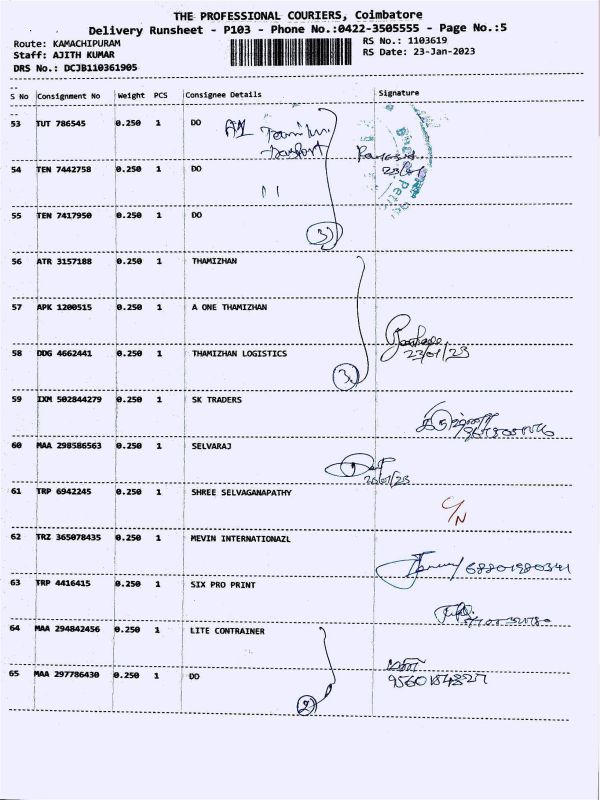 THE PROFESSIONAL COURIERS, Coimbatore
Delivery Runsheet - P103 - Phone No.:0422-3505555 - Page No.:5
Route: KAMACHIPURAM
RS No.: 1103619
Staff: AJITH KUMAR
RS Date: 23-Jan-2023
DRS No.: DCJB110361905
S No Consignment No Weight PCS Consignee Details Signature
53 TUT 786545 0.250 1 DO
54 TEN 7442758 0.250 1 DO
23/01
55 TEN 7417950 0.250 1 DO
3
56 ATR 3157188 0.250 1 THAMIZHAN
57 APK 1200515 0.250 1 A ONE THAMIZHAN
58 DDG 4662441 0.250 1 THAMIZHAN LOGISTICS
23/01/23
3
59 IXM 502844279 0.250 1 SK TRADERS
60 MAA 298586563 0.250 1 SELVARAJ
61 TRP 6942245 0.250 1 SHREE SELVAGANAPATHY
C/N
62 TRZ 365078435 0.250 1 MEVIN INTERNATIONAZL
63 TRP 4416415 0.250 1 SIX PRO PRINT
64 MAA 294842456 0.250 1 LITE CONTRAINER
65 MAA 297786430 0.250 1 DO
2